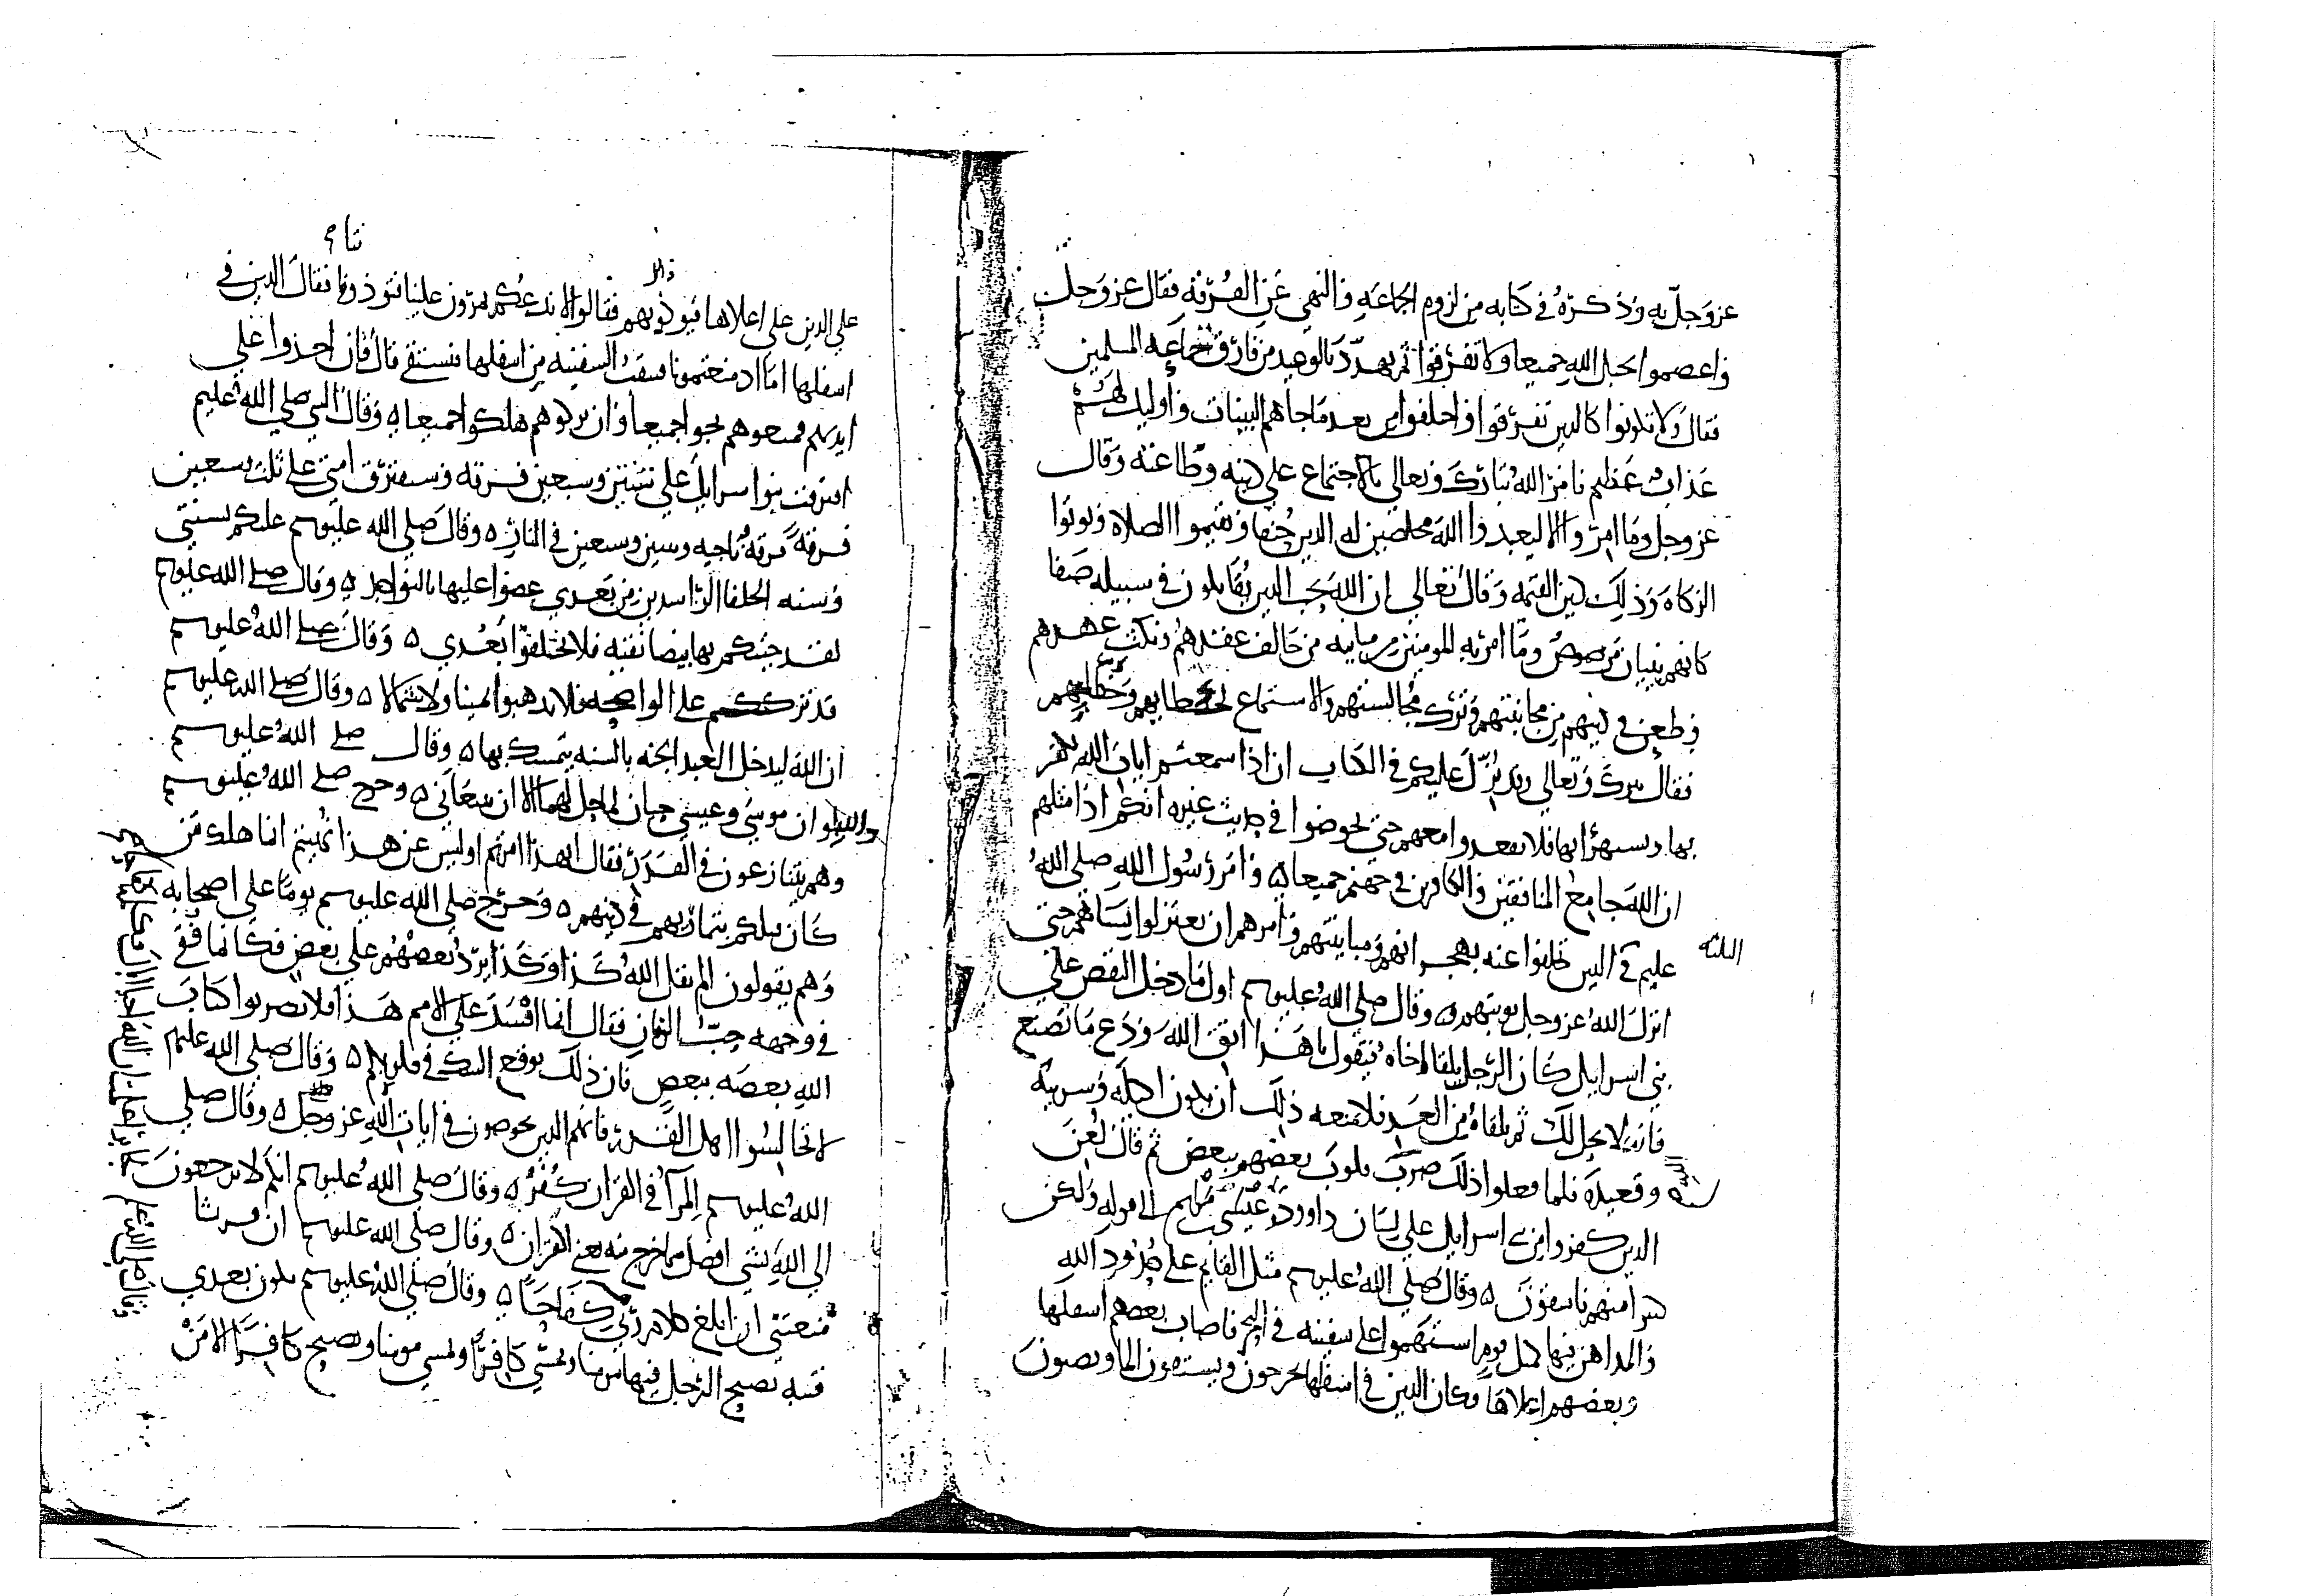 عز وجل به وذكره في كتابه من لزوم الجماعه والنهي عن الفرقه فقال عز وجل
واعصموا بحبل الله جميعا ولا تفرقوا ثم يهدد بالوعيد من فارق جماعه المسلمين
فقال ولا تكونوا كالدين تفرقوا واحلفوا من بعد ما جاهم البينات واوليك لهم
عذاب عظيم فامر الله تبارك وتعالي بالاجتماع علي دينه وطاعته وقال
عز وجل وما امروا الا ليعبدوا الله مخلصين له الدين حنفا ويقيموا الصلاه ويوتوا
الزكاه وذلك دين القيمه وقال تعالي ان الله يحب الدين يقاتلون في سبيله صفا
كانهم بنيان مرصوص ومما امر به المومنين من مباينه من خالف عقدهم ونكث عهدهم
وطعن في دينهم من مجانبتهم وترك مجالستهم والاستماع لخطايهم
فقال تبرك وتعالي وقد نزل عليكم في الكتاب ان اذا سمعتم ايات الله يكفر
بها ويستهزا بها فلا تقعدوا معهم حتي يخوضوا في حديث غيره انكم اذا مثلهم
ان الله جامع المنافقين والكافرين في جهنم جميعا ۵ وامر رسول الله صلي الله
عليه في الدين تخلفوا عنه بهجرانهم ومباينتهم وامرهم ان يعتزلوا نساهم حتي
الثلثه
انزل الله عز وجل توبتهم ۵ وقال صلي الله عليه وسم اول ما دخل النقص علي
بني اسرايل كان الرجل يلقا اخاه فيقول يا هذا اتق الله ودع ما تصنع
فانه لا يحل لك ثم يلقاه من الغد فلا يمنعه ذلك ان يكون اكيله وشريبه
وقعيده فلما فعلوا ذلك ضرب قلوب بعضهم ببعض ثم قال لعن
الدين كفروا من بني اسرايل علي لسان داوود وعيسي بن مريم الي قوله ولكن
كثيرا منهم فاسقون ۵ وقال صلي الله عليه وسم مثل القايم علي حدود الله
والمداهن فيها كمثل قوم استهموا علي سفينه في البحر فاصاب بعضهم اسفلها
وبعضهم اعلاها فكان الدين في اسفلها يخرجون ويستقون الما ويصبون
علي الدين علي اعلاها فيوذونهم فقالوا لا ندعكم تمرون علينا فتوذونا فقال الدين في
اسفلها اما اذ منعتمونا فننقب السفينه من اسفلها فنستقي قال فان اخذوا علي
ايديهم فمنعوهم نجوا جميعا وان تركوهم هلكوا جميعا ۵ وقال النبي صلي الله عليه
افترقت بنوا اسرايل علي ثنتين وسبعين فرقه وستفترق امتي علي ثلث وسبعين
فرقه فرقه ناجيه وثنتين وسبعين في النار ۵ وقال صلي الله عليه وسم عليكم بسنتي
وسنه الخلفا الراشدين من بعدي عضوا عليها بالنواجد ۵ وقال صلي الله عليه وسم
لقد جيتكم بها بيضا نقيه فلا تختلفوا بعدي ۵ وقال صلي الله عليه وسم
قد تركتكم علي الواضحه فلا تدهبوا يمينا ولا شمالا ۵ وقال صلي الله عليه وسم
ان الله ليدخل العبد الجنه بالسنه يتمسك بها ۵ وقال صلي الله عليه وسم
والله لو ان موسي وعيسي حيان لما حل لهما الا ان يتبعاني ۵ وخرج صلي الله عليه وسم
وهم يتنازعون في القدر فقال ابهذا امرتم اوليس عن هذا نهيتم انما هلك من
كان قبلكم بتماريهم في دينهم ۵ وخرج صلي الله عليه وسم يوما علي اصحابه
وهم يقولون الم يقل الله كذا وكذا يرد بعضهم علي بعض فكانما فقي
في وجهه حب الرمان فقال انما افسد علي الامم هذا فلا تضربوا كتاب
الله بعضه ببعض فان ذلك يوقع الشك في قلوبكم ۵ وقال صلي الله عليه
لا تجالسوا اهل القدر فانهم الدين يخوضون في ايات الله عز وجل ۵ وقال صلي
الله عليه وسم المرا في القران كفر ۵ وقال صلي الله عليه وسم انكم لا ترجعون
الي الله بشي افضل مما خرج منه يعني القران ۵ وقال صلي الله عليه وسم ان قريشا
منعتني ان ابلغ كلام ربي كفاحا ۵ وقال صلي الله عليه وسم يكون بعدي
فتنه يصبح الرجل فيها مومنا ويمسي كافرا ويمسي مومنا ويصبح كافرا الا من